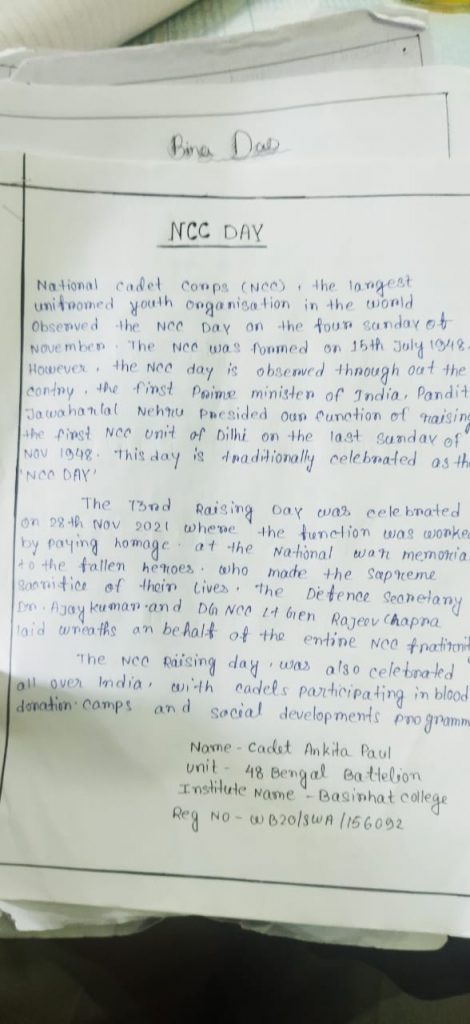 Bina Das
NCC DAY
National cadet Conps (NCC), the largest
unifnomed youth onganisation in the world
Obsenved the NCC Day on the foun sunday of
Novemben. The NCC was fonmed on 15th July 1948.
Howeven, the NCC day is obsenved thnough out the
contny, the finst Pnime ministen of India, Pandit
Jawahanlal Nehnu Pnesided oun function of naising
the finst NCC unit of Dilhi on the last sunday of
NOV 1948. This day is tnaditionally celebnated as th
'NCC DAY'
The 73nd Raising Day was celebnated
on 28th Nov 2021 whene the function was wonke
by paying homage. at the National wan memonia
to the fallen henoes. who made the sapneme
sacnifice of thein Lives. The Defence Secnetany
Dn. Ajay kuman and DG NCC Lt Gen Rajeev Chapna
laid wneaths an behalf of the entine NCC fnatinnit
The NCC Raising day, was also celebnated
all oven India, with cadets panticipating in blood
donation camps and social developments pnognamm
Name - Cadet Ankita Paul
Unit - 48 Bengal Battelion
Institute Name - Basinhat college
Reg NO - WB20/SWA/156092